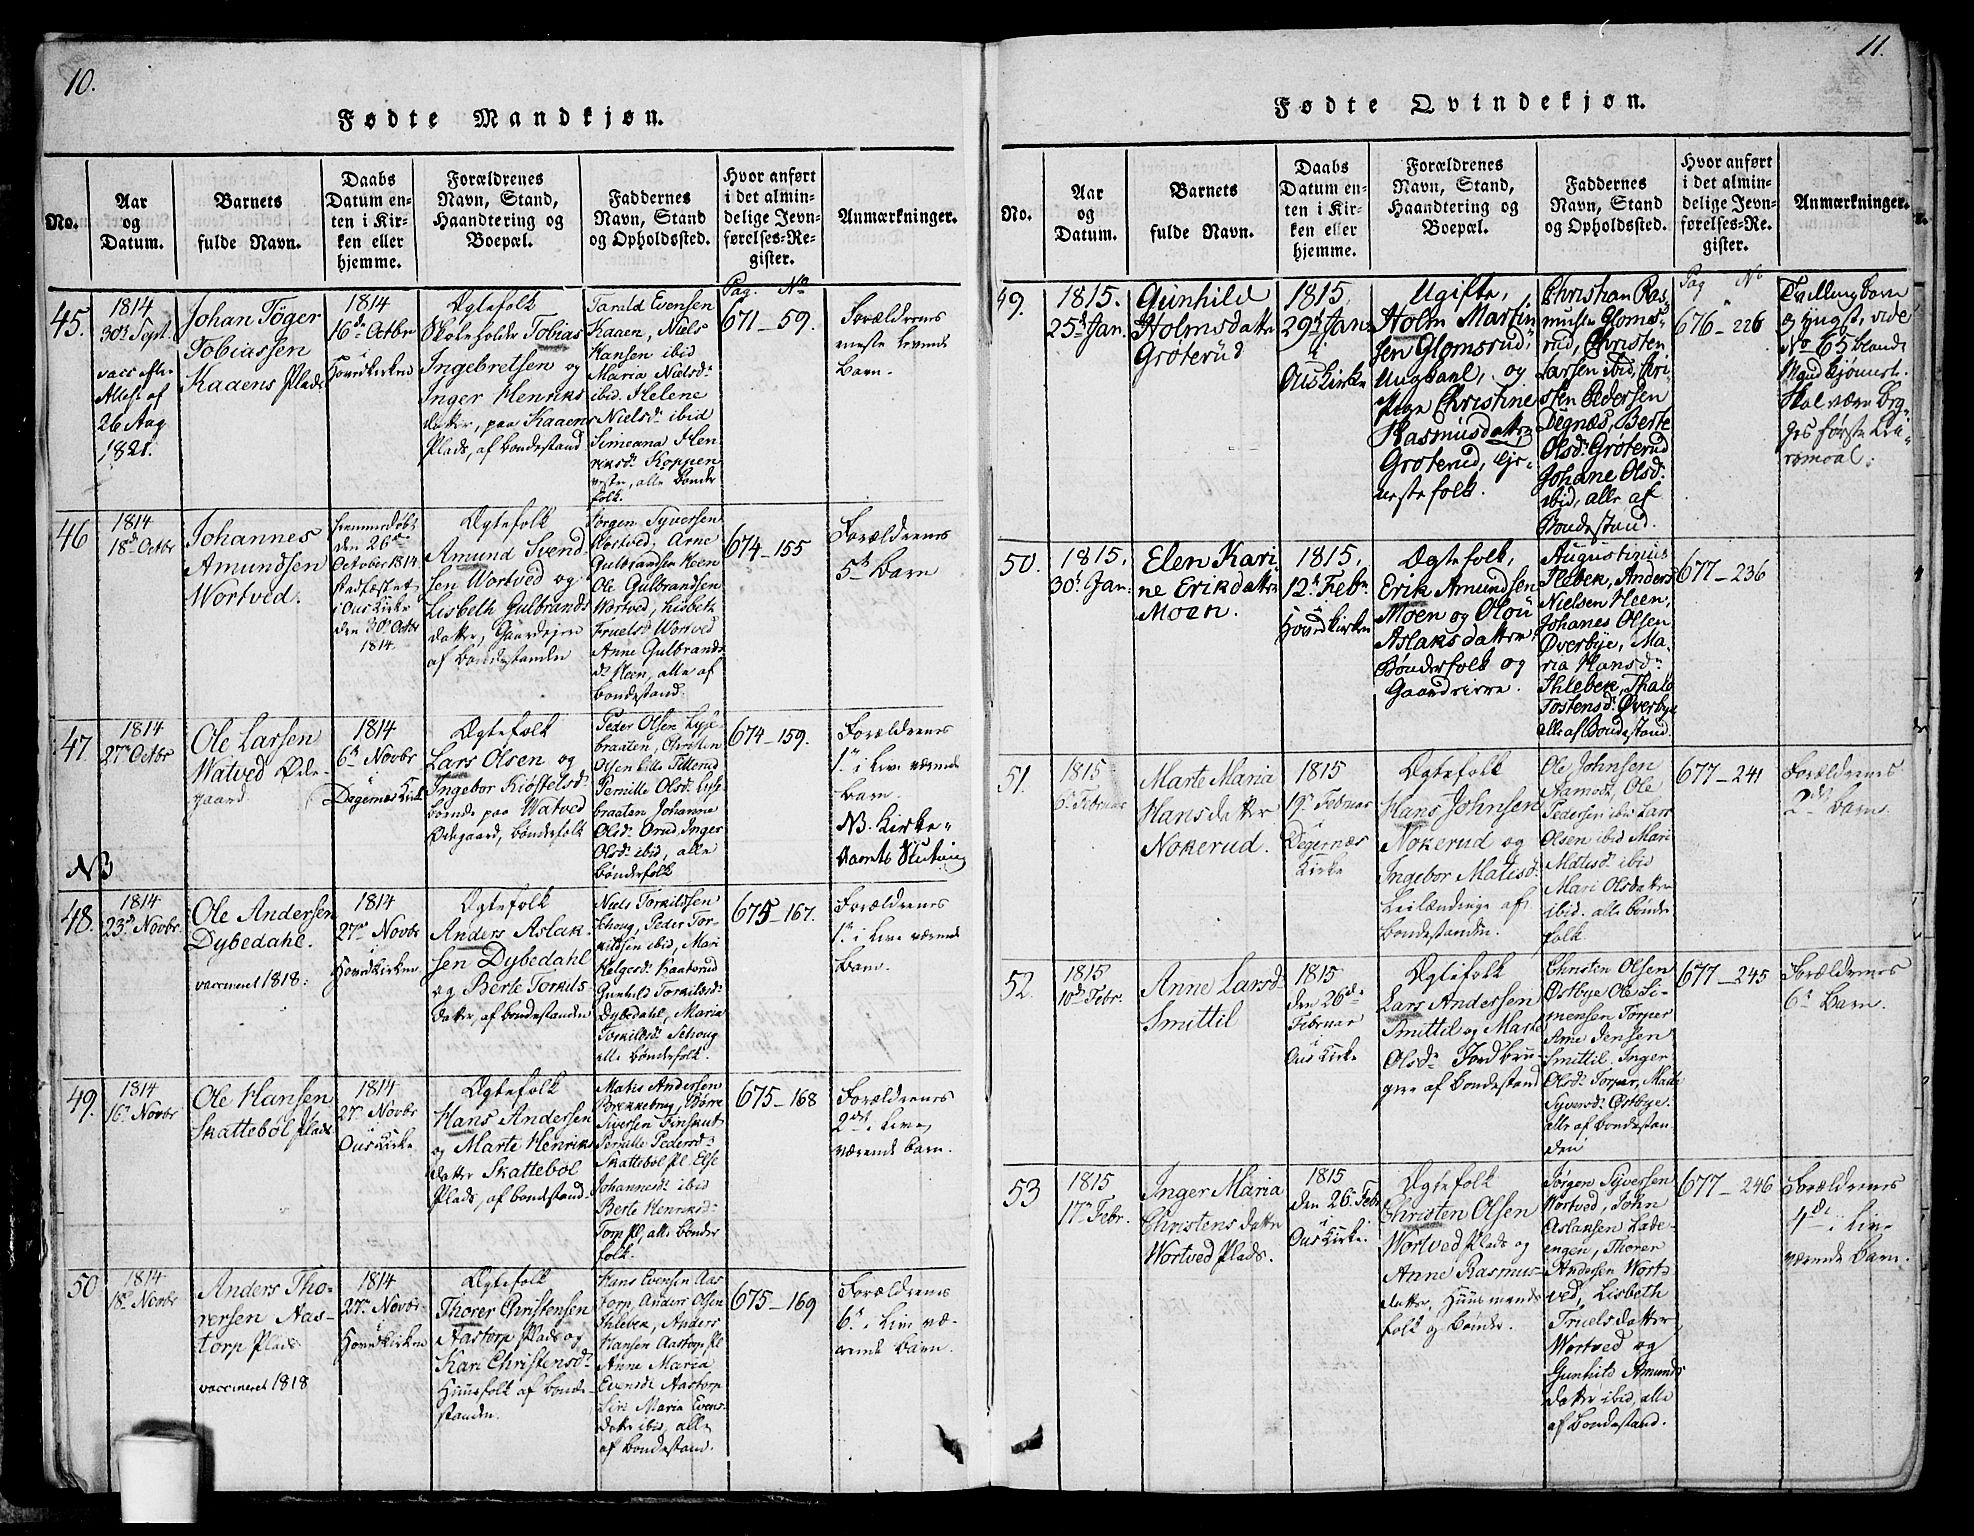 10.
Fødte Mandkjøn.
No.
Aar
og
Datum.
Barnets
fulde Navn.
Daabs
Datum en-
ten i Kir-
ken eller
hjemme.
Forældrenes
Navn, Stand,
Haandtering og
Boepæl.
Faddernes
Navn, Stand
og Opholdssted.
Hvor anført
i det almin-
delige Jevn-
førelses-Re-
gister.
Anmærkninger.
Pag. No
45.
1814
30te Sept.
vacc. efter
Attest af
26 Aug
1821.
Johan Töger
Tobiassen
Kaaens Plads
1814
16de Octbr
i
Hovedkirken
Ægtefolk
Skoleholder Tobias
Ingebretsen og
Inger Henriks
datter, paa Kaaens
Plads, af bondestand
Tarald Evensen
Kaaen, Niels
Hansen ibid
Maria Nielsd:
ibid. Helene
Nielsd: ibid
Simeana Hen
riksd: Koppen
, alle bønder
folk.
671-59.
Forældrenes
neste levende
barn.
46
1814
18de Octbr
Johannes
Amundsen
Wortved.
hiemmedøbt
den 26de
October 1814
stadfæstet
i Ous Kirke
den 30te Octbr
1814.
Ægtefolk
Amund Svend
sen Wortved og
Lisbeth Gulbrands
datter, Gaardejere
af bondestanden
Jörgen Syversen
Wortved, Arne
Gulbrandsen Heen
Ole Gulbrandsen
Wortved, Lisbeth
Truelsd: Wortved
Anne Gulbrands
d: Heen, alle af
bondestand.
674-155
Forældrenes
5te Barn
47.
1814
27de Octbr
Ole Larsen
Watved Øde-
gaard.
1814
6te Novbr
i
Degernæs Kirke
Ægtefolk
Lars Olsen og
Ingebor Kiöstelsd:
boende paa Watved
Ødegaard, bønderfolk
Peder Olsen Lyse
braaten, Christen
Olsen lille Titterud
Pernille Olsd: Lyse
braaten Johanne
Olsd: Orud, Inger
Olsd: ibid, alle
bønderfolk
674-159.
Forældrenes
1te i Live værende
barn.
NB. Kirke-
Aarets Slutning
NB
48.
1814
23de Novbr
Ole Andersen
Dybedahl.
vaccineret 1818.
1814
27de Novbr
i
Hovedkirken
Ægtefolk
Anders Aslak
sen Dybedahl
og Berte Torkils
datter, af bondestanden
Niels Torkildsen
Schoug, Peder Tor-
kildsen ibid, Mari
Helgesd: Kaaterud
Gunhild Torkildsd:
Dybedahl, Maria
Torkildsd: Schoug
alle bønderfolk.
675-167.
Forældrenes
1te i Live værende
barn.
49.
1814
16de Novbr
Ole Hansen
Skattebøl Plads
1814
27de Novbr
i
Ous Kirke
Ægtefolk
Hans Andersen
og Marte Henriks
datter Skattebøl
Plads, af bondestand.
Matis Andersen
Brekkebrug, Børre
Siversen Finskut
Pernille Pedersd:
Skattebøl Pl. Else
Johannesd: ibid
Berte Henriksd:
Torp Pl, alle bønder
folk.
675-168
Forældrenes
2det i Live
værende barn.
50
1814
18de Novbr
Anders Tho-
rersen Aas-
torp Plads
vaccineret 1818
1814
27de Novbr
i
Hovedkirken
Ægtefolk
Thorer Christensen
Aastorp Plads og
Kari Christensd:
Huusfolk af bonde-
standen.
Hans Evensen Aas
torp, Anders Olsen
Ihlebek, Anders
Hansen Aastorp Pl
Anne Maria
Evensd: Aastorp
Siri Maria Evens-
datter ibid, alle
af bondestand.
675-169
Forældrenes
6te i Live væ-
rende barn.
11.
Fødte Qvindekjøn.
No.
Aar
og
Datum.
Barnets
fulde Navn.
Daabs
Datum en-
ten i Kir-
ken eller
hjemme.
Forældrenes
Navn, Stand,
Haandtering og
Boepæl.
Faddernes
Navn, Stand
og Opholdssted.
Hvor anført
i det almin-
delige Jevn-
førelses-Re-
gister.
Anmærkninger.
Pag No
49.
1815.
25de Jan.
Gunhild
Holmsdatter
Groterüd
1815.
29de Jan:
i
Ous Kirke
Ugifte,
Holm Martin
sen Glomsrud,
Ungkarl, og
Pige Christine
Rasmusdatter
Groterud, tje-
nestefolk.
Christian Ras-
musen Gloms-
rud, Christen
Larsen ibid, Kri-
sten Pedersen
Degnæs, Berte
Olsd: Grøterud
Johane Olsd:
ibid, alle af
Bondestand.
676-226
Tvillingbarn
og yngst, vide
No 65 blandt
Mandkjønnet.
Skal være beg-
ges første Lei-
ermaal.
50.
1815.
30te Jan.
Elen Kari
ne Erikdatter
Moen.
1815.
12te Febr.
i
Hovedkirken
Ægtefolk,
Erik Amundsen
Moen og Olou
Aslaksdatter,
Bønderfolk og
Gaardeiere.
Augustinius
Ilebek, Anders
Nielsen Heen,
Johanes Olsen
Øverbye, Ma-
ria Hansd:
Ihlebek, Thale
Tostensd: Øverbye
alle af Bondestand.
677-236
51.
1815
6te Februar
Marte Maria
Hansdatter
Nokerud.
1815
19de Februar
i
Degernæs
Kirke
Ægtefolk
Hans Johnsen
Nokerud og
Ingebor Matisd:
Leilændinge af
bondestanden.
Ole Johnsen
Aamodt, Ole
Pedersen ibid Lars
Olsen ibid Mari
Matisd: ibid
Mari Olsdatter
ibid. alle bønder
folk
677-241
Forældrenes
2det Barn.
52.
1815
10de Febr.
Anne Larsd:
Smittil
1815
den 26de
Februar
i
Ous Kirke
Ægtefolk
Lars Andersen
Smittil og Marte
Olsd: Jordbru
gere af bondestand
Christen Olsen
Østbye Ole Si-
mensen Torper
Arne Jensen
Smittil, Inger
Olsd: Torper, Mari
Syversd: Østbye.
alle af bondestan
den
677-245
Forældrenes
6te Barn.
53
1815
17de Febr.
Inger Maria
Christensdatter
Wortved Plads.
1815
den 26de Febr
i
Ous Kirke.
Ægtefolk
Christen Olsen
Wortved Plads og
Anne Rasmus-
datter, Huusmands
folk og bønder.
Jørgen Syversen
Wortved, John
Aslaksen Lade-
engen, Thorer
Andersen Wort-
ved, Lisbeth
Truelsdatter
Wortved og
Gunhild Amunds
datter ibid, alle
af bondestand.
677-246
Forældrenes
4de i Live
værende barn.